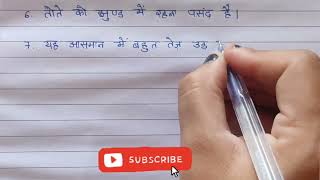 6. तोते को झुण्ड में रहना पसंद है।
7. यह आसमान में बहुत तेज़ उड़
SUBSCRIBE